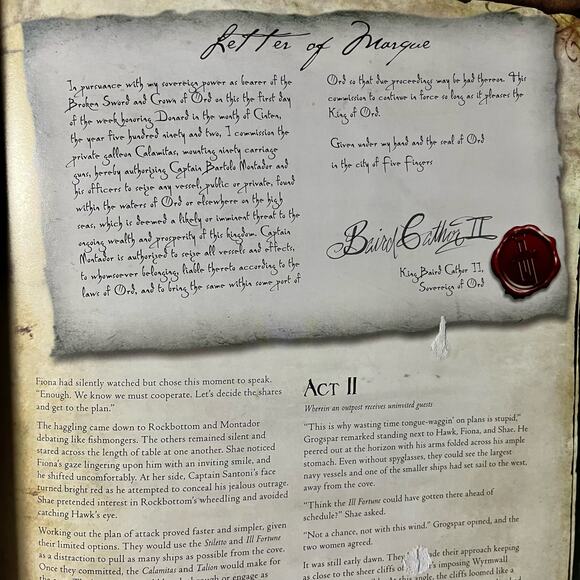 Letter of Marque
In pursuance with my sovereign power as bearer of the
Broken Sword and Crown of Ord on this the first day
of the week honoring Donard in the month of Cinten,
the year five hundred ninety and two, I commission the
private galleon Calamitas, mounting ninety carriage
guns, hereby authorizing Captain Bartolo Montador and
his officers to seize any vessel, public or private, found
within the waters of Ord or elsewhere on the high
seas, which is deemed a likely or imminent threat to the
ongoing wealth and prosperity of this kingdom. Captain
Montador is authorized to seize all vessels and effects,
to whomsoever belonging, liable thereto according to the
laws of Ord, and to bring the same within some port of
Ord so that due proceedings may be had thereon. This
commission to continue in force so long as it pleases the
King of Ord.
Given under my hand and the seal of Ord
in the city of Five Fingers
Baird Cathor II
King Baird Cathor II,
Sovereign of Ord
Fiona had silently watched but chose this moment to speak.
“Enough. We know we must cooperate. Let’s decide the shares
and get to the plan.”
The haggling came down to Rockbottom and Montador
debating like fishmongers. The others remained silent and
stared across the length of table at one another. Shae noticed
Fiona’s gaze lingering upon him with an inviting smile, and
he shifted uncomfortably. At her side, Captain Santoni’s face
turned bright red as he attempted to conceal his jealous outrage.
Shae pretended interest in Rockbottom’s wheedling and avoided
catching Hawk’s eye.
Working out the plan of attack proved faster and simpler, given
their limited options. They would use the Stiletto and Ill Fortune
as a distraction to pull as many ships as possible from the cove.
Once they committed, the Calamitas and Talion would make for
or engage as
Act II
Wherein an outpost receives uninvited guests
“This is why wasting time tongue-waggin’ on plans is stupid,”
Grogspar remarked standing next to Hawk, Fiona, and Shae. He
peered out at the horizon with his arms folded across his ample
stomach. Even without spyglasses, they could see the largest
navy vessels and one of the smaller ships had set sail to the west,
away from the cove.
“Think the Ill Fortune could have gotten there ahead of
schedule?” Shae asked.
“Not a chance, not with this wind.” Grogspar opined, and the
two women agreed.
It was still early dawn. They made their approach keeping
as close to the sheer cliffs of imposing Wyrmwall
this angle, the cliffs loomed like a